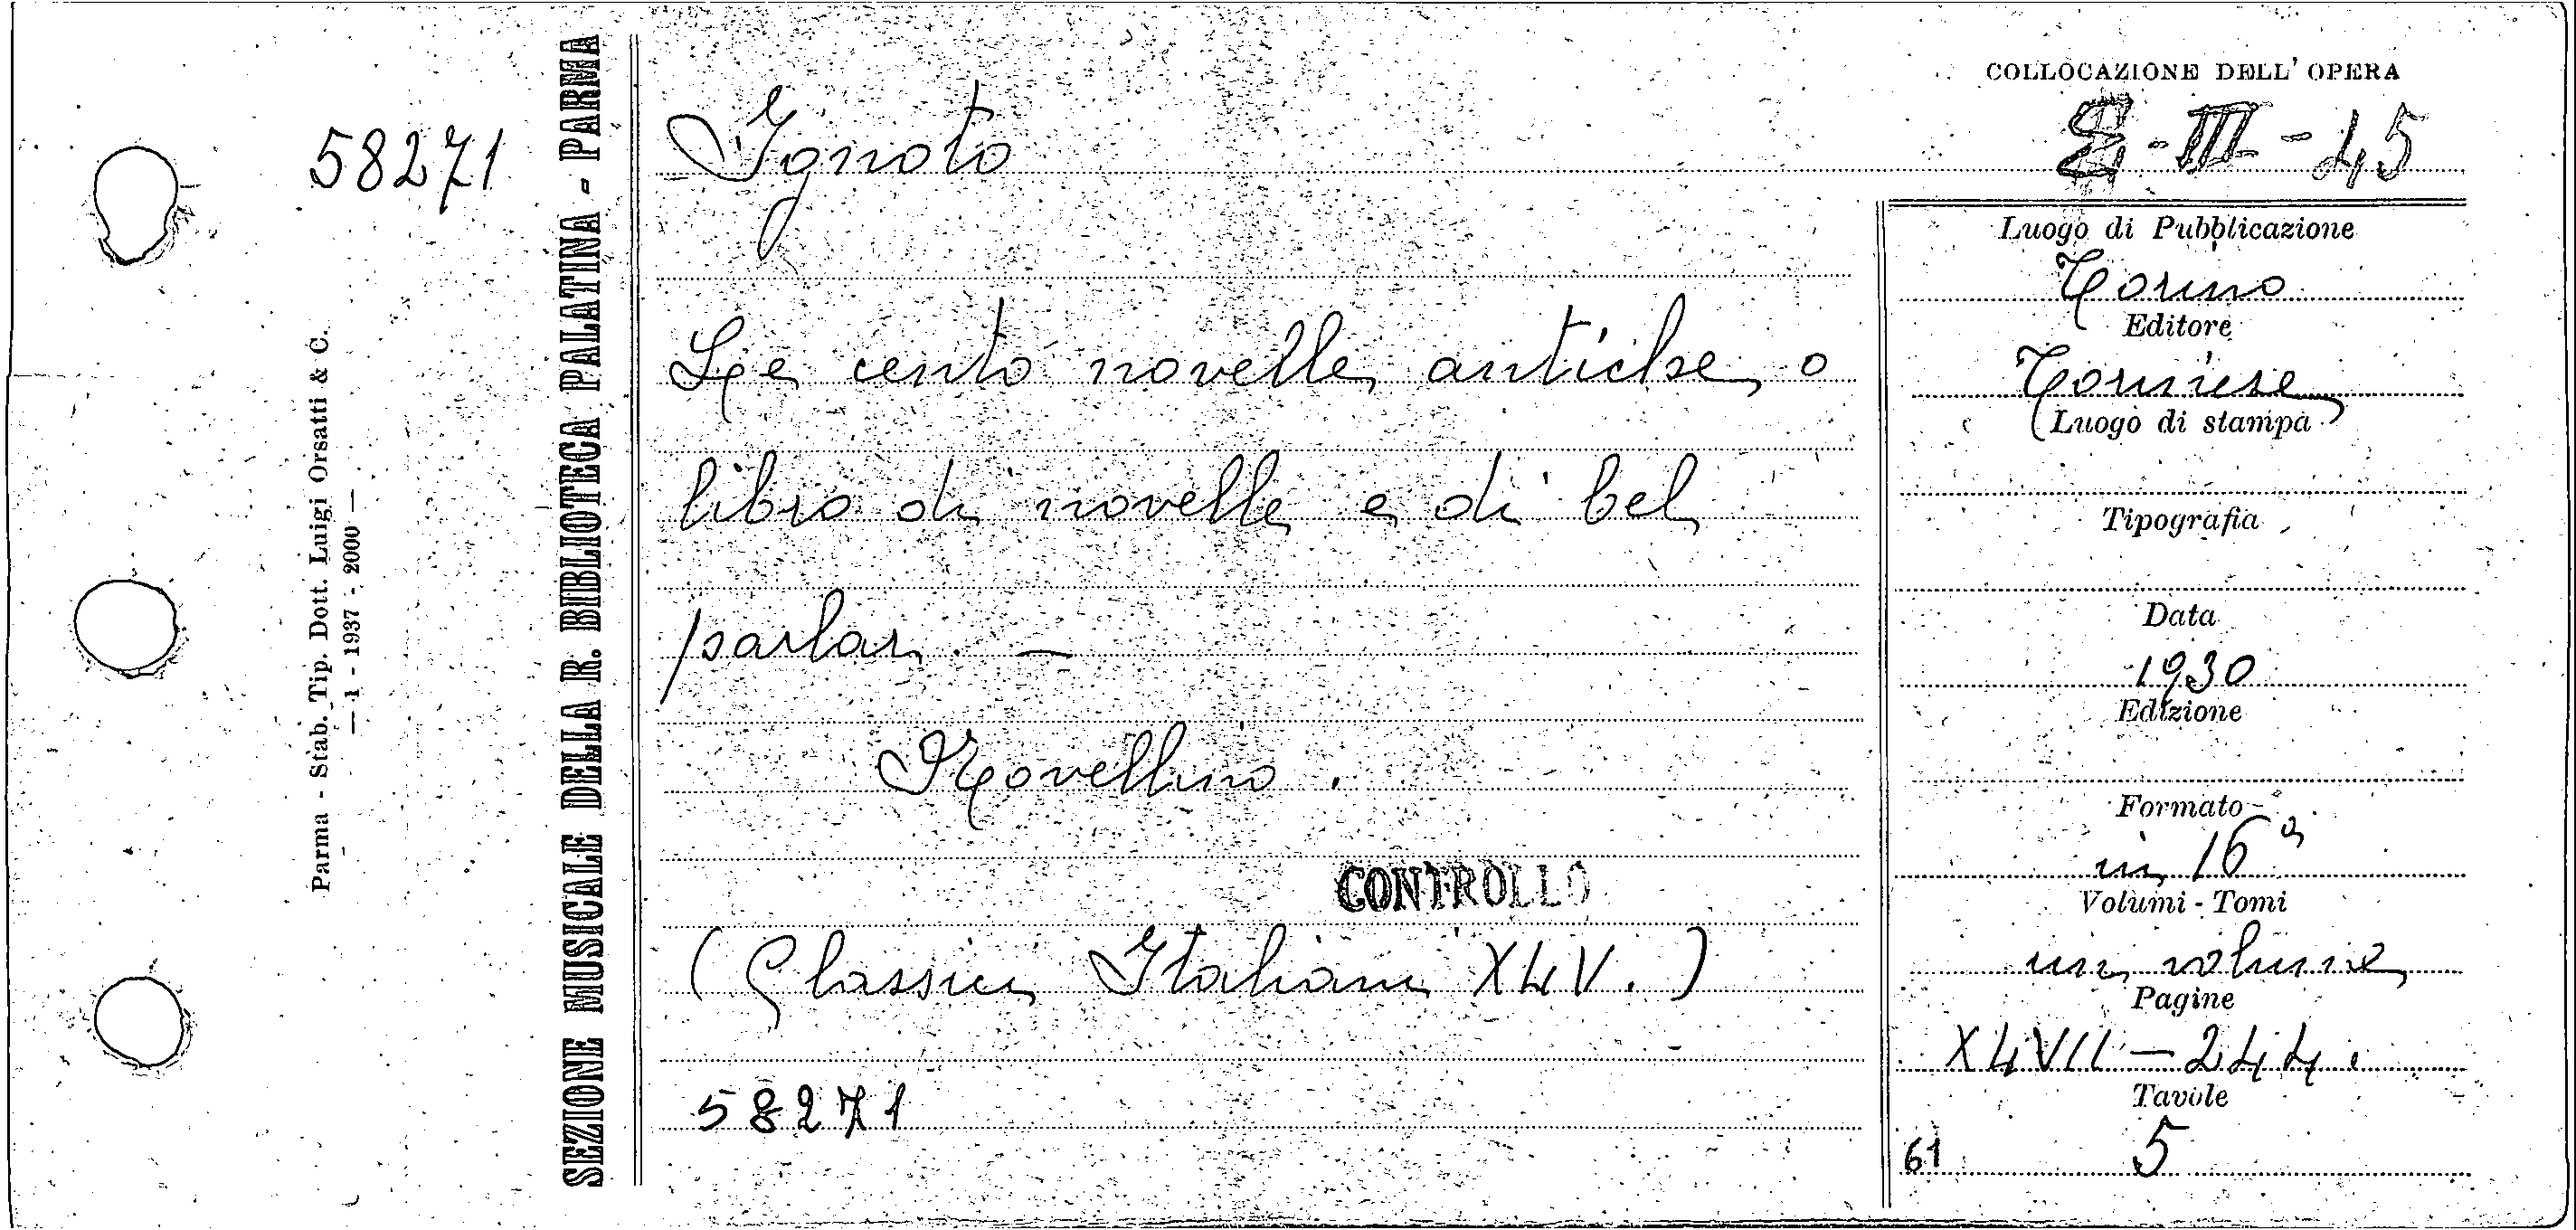 58271
Parma - Stab. Tip. Dott. Luigi Orsatti & C.
— 1 - 1937 - 2000 —
SEZIONE MUSICALE DELLA R. BIBLIOTECA PALATINA - PARMA
Ignoto
Le cento novelle antiche o
libro di novelle e di bel
parlar. —
Novellino.
CONTROLLO
(Classici Italiani XLV.)
58271
COLLOCAZIONE DELL'OPERA
-III-45
Luogo di Pubblicazione
Torino
Editore
Torinese
Luogo di stampa
Tipografia
Data
1930
Edizione
Formato
in 16°
Volumi - Tomi
un volume
Pagine
XLVII—244.
Tavole
61 5